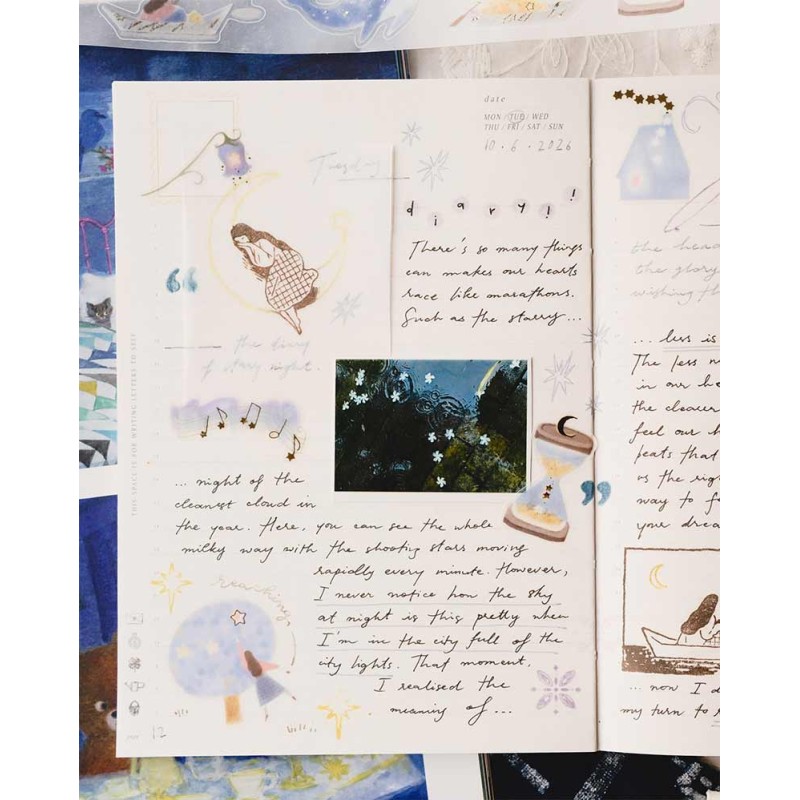 date
MON / TUE / WED
THU / FRI / SAT / SUN
10 . 6 . 2026
Tuesday
diary!!
There's so many things
can makes our hearts
race like marathons.
Such as the starry...
the diary
of starry night.
THIS SPACE IS FOR WRITING LETTERS TO SELF
... night of the
cleanest cloud in
the year. Here, you can see the whole
milky way with the shooting stars moving
rapidly every minute. However,
I never notice how the sky
at night is this pretty when
I'm in the city full of the
city lights. That moment,
I realised the
meaning of...
reaching
12
the
the glory
wishing
... less is
The less
in our
the clearer
feel our
beats that
us the
way to
your
... now I
my turn to